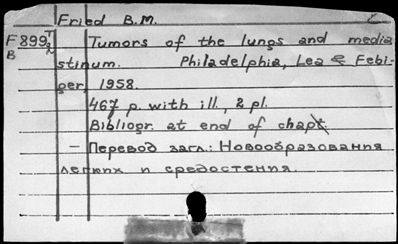 Fried B.M.
F 899 T/2N Tumors of the lungs and media
B stinum. Philadelphia, Lea & Febi-
ger, 1958.
467 p. with ill., 2 pl.
Bibliogr. at end of chapt.
— Перевод загл.: Новообразования
легких и средостения.